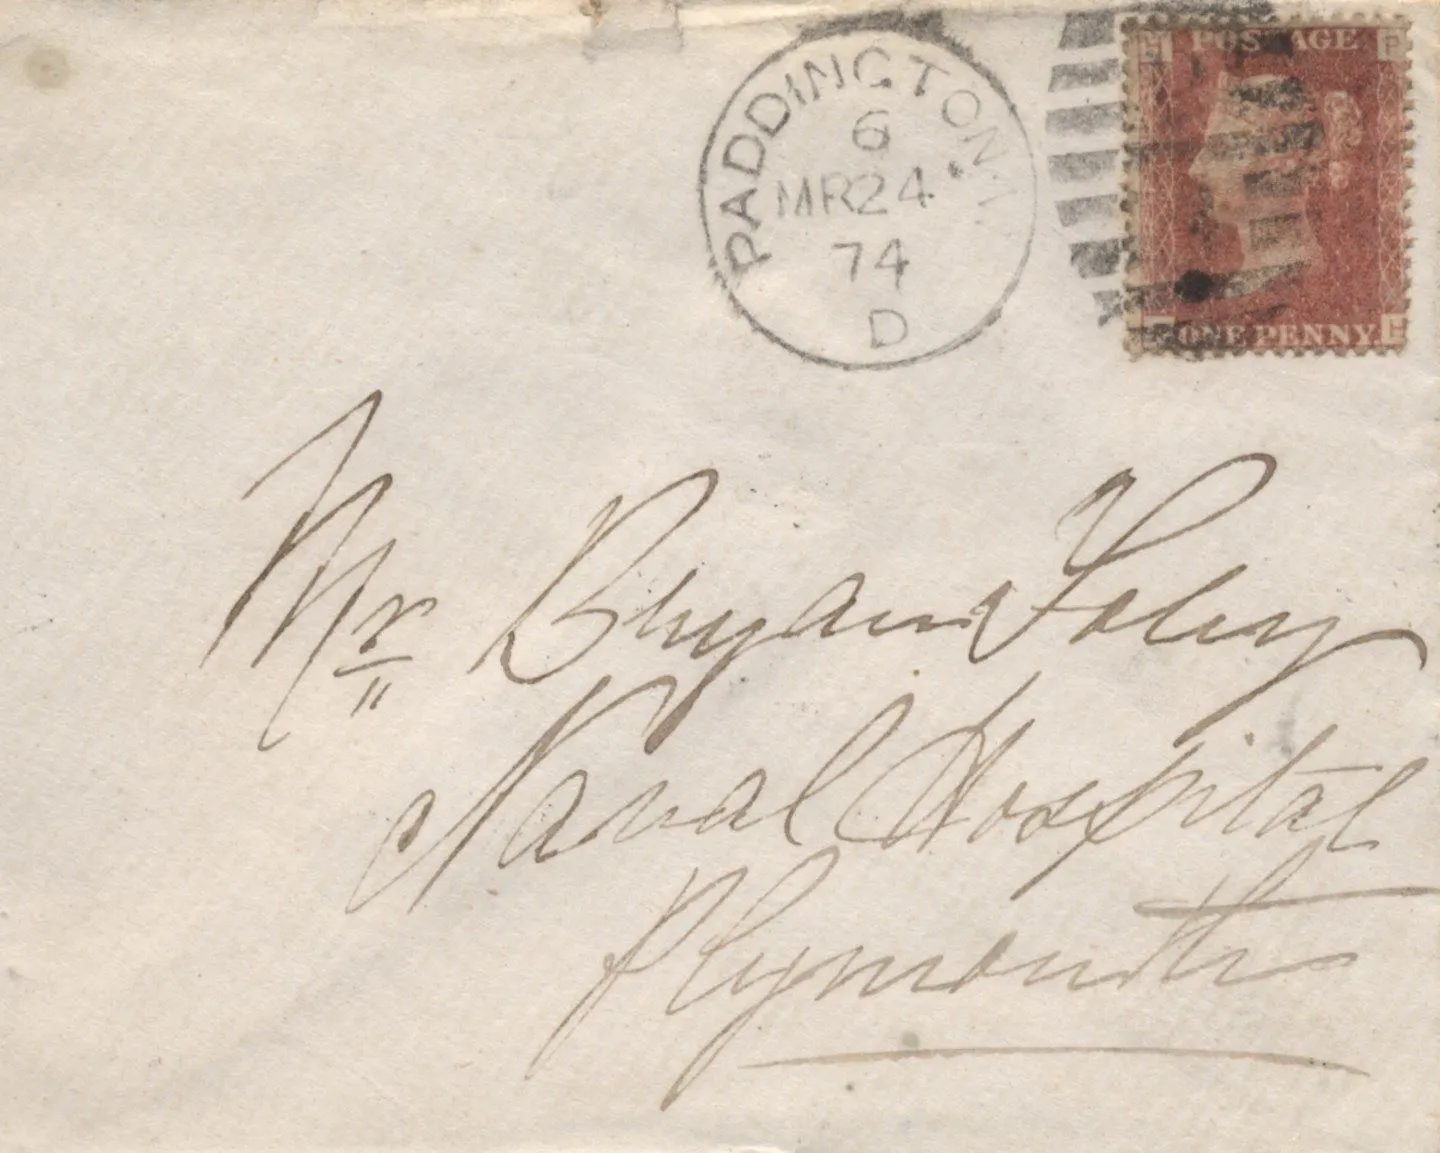 PADDINGTON.W
6
MR24
74
D
POSTAGE
ONE PENNY
Mr Bryan Foley
Naval Hospital
Plymouth